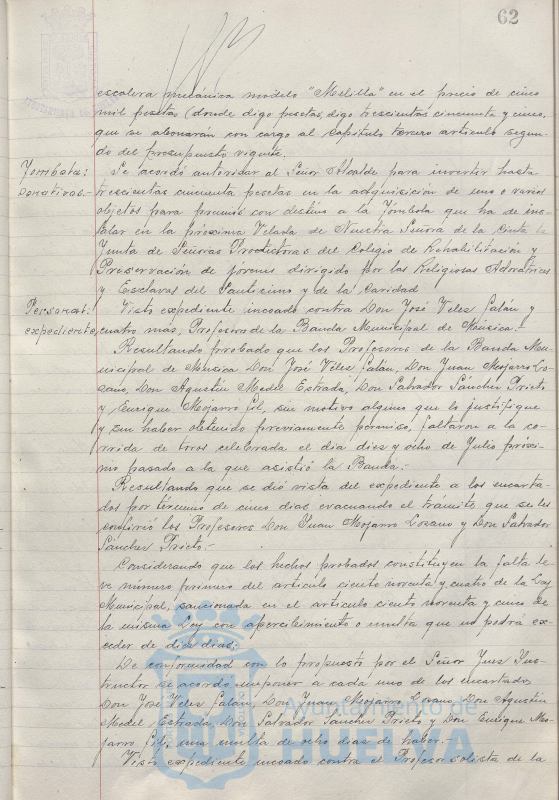 62
escalera mecánica modelo "Melilla" en el precio de cinco
mil pesetas (donde digo pesetas, digo trescientas cincuenta y cinco,
que se abonarán con cargo al Capítulo tercero artículo segun-
do del presupuesto vigente.
Tómbola:
Donativos.-
Se acordó autorizar al Señor Alcalde para invertir hasta
trescientas cincuenta pesetas en la adquisición de uno o varios
objetos para premios con destino a la Tómbola que ha de ins-
talar en la próxima Velada de Nuestra Señora de la Cinta la
Junta de Señoras Protectoras del Colegio de Rehabilitación y
Preservación de jóvenes dirigido por las Religiosas Adoratrices
y Esclavas del Santísimo y de la Caridad
Personal:
expediente
Visto expediente incoado contra Don José Vélez Galán y
cuatro más, Profesores de la Banda Municipal de Música.-
Resultando probado que los Profesores de la Banda Mu-
nicipal de Música Don José Vélez Galán, Don Juan Mojarro Lo-
zano, Don Agustín Medel Estrada, Don Salvador Sánchez Prieto
y Enrique Mojarro Gil, sin motivo alguno que lo justifique
y sin haber obtenido previamente permiso, faltaron a la co-
rrida de toros celebrada el día diez y ocho de Julio próxi-
mo pasado a la que asistió la Banda.-
Resultando que se dió vista del expediente a los encarta-
dos por término de cinco días evacuando el trámite que se les
confirió los Profesores Don Juan Mojarro Lozano y Don Salvador
Sánchez Prieto.-
Considerando que los hechos probados constituyen la falta le-
ve número primero del artículo ciento noventa y cuatro de la Ley
Municipal, sancionada en el artículo ciento noventa y cinco de
la misma Ley con apercibimiento o multa que no podrá ex-
ceder de diez días;
De conformidad con lo propuesto por el Señor Juez Ins-
tructor se acordó imponer a cada uno de los encartados
Don José Vélez Galán, Don Juan Mojarro Lozano, Don Agustín
Medel Estrada, Don Salvador Sánchez Prieto y Don Enrique Mo-
jarro Gil, una multa de ocho días de haber.-
Visto expediente incoado contra el Profesor solista de la
Ayuntamiento de
HUELVA